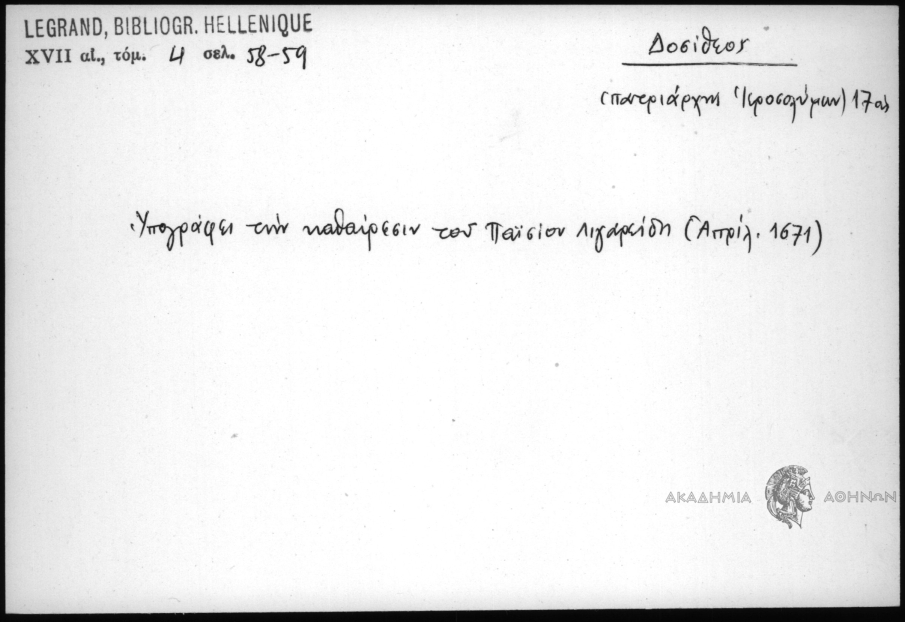 LEGRAND, BIBLIOGR. HELLENIQUE
XVII αἰ., τόμ. 4 σελ. 58-59
Δοσίθεος
(πατριάρχης Ἱεροσολύμων) 17 αἰ.
Ὑπογράφει τὴν καθαίρεσιν τοῦ Παϊσίου Λιγαρείδη (Ἀπρίλ. 1671)
ΑΚΑΔΗΜΙΑ ΑΘΗΝΩΝ